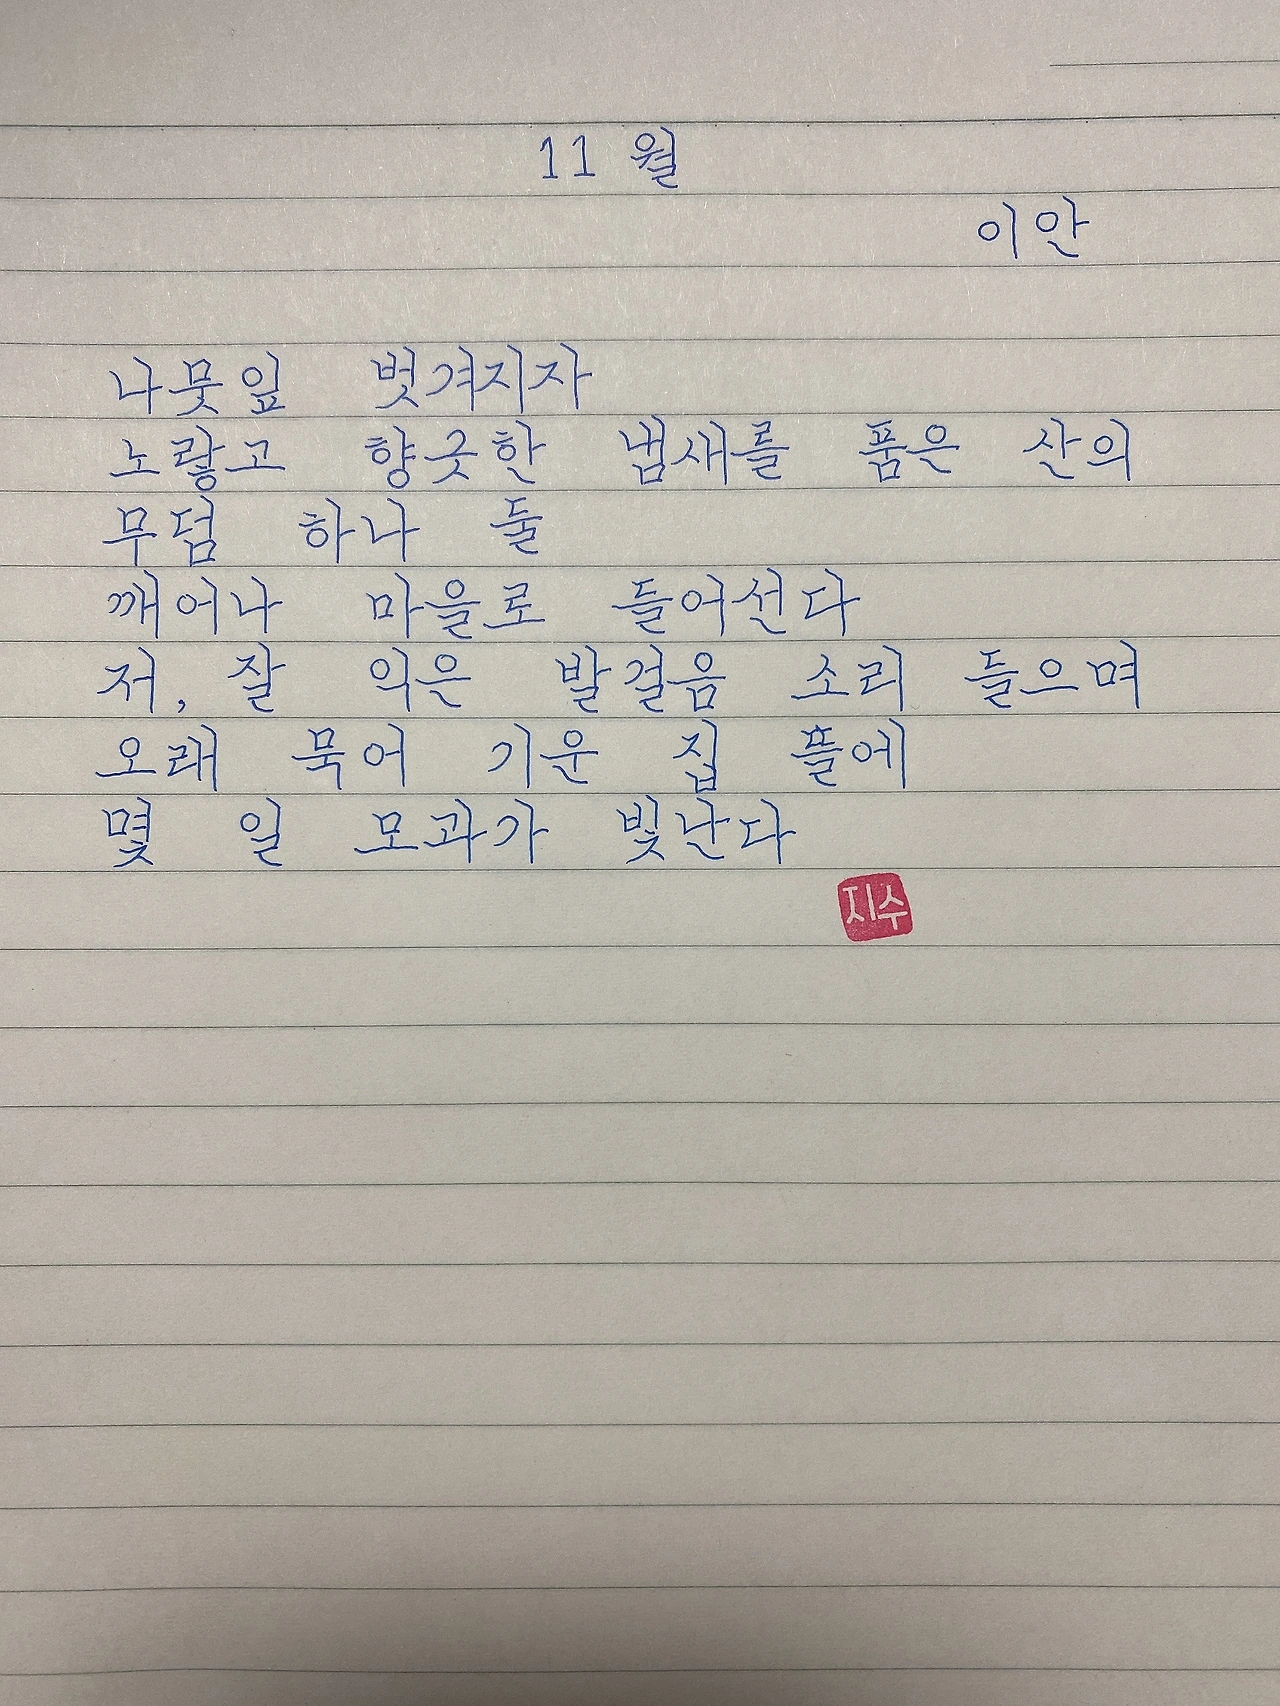 11 월
이안
나뭇잎 벗겨지자
노랗고 향긋한 냄새를 품은 산의
무덤 하나 둘
깨어나 마을로 들어선다
저, 잘 익은 발걸음 소리 들으며
오래 묵어 기운 집 뜰에
몇 일 모과가 빛난다
지수